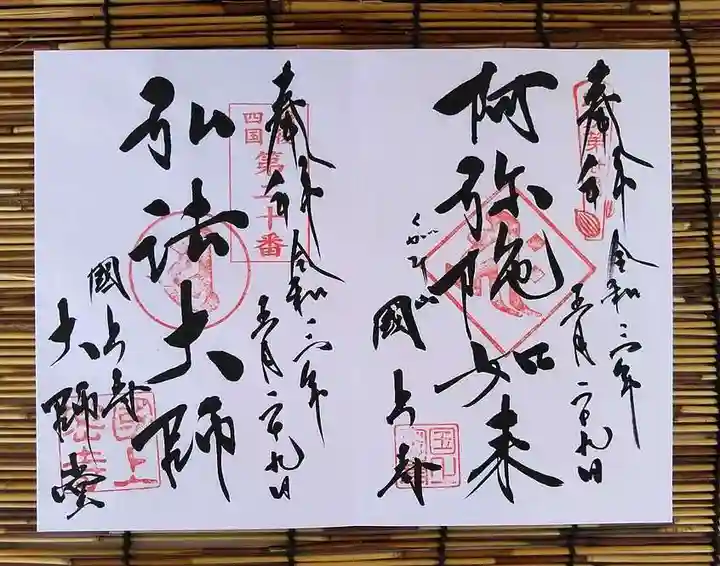 奉拝
令和三年
五月二十九日
阿弥陀如来
くがみ山
國上寺
奉拝
四国
第二十番
令和三年
五月二十九日
弘法大師
國上寺
大師堂